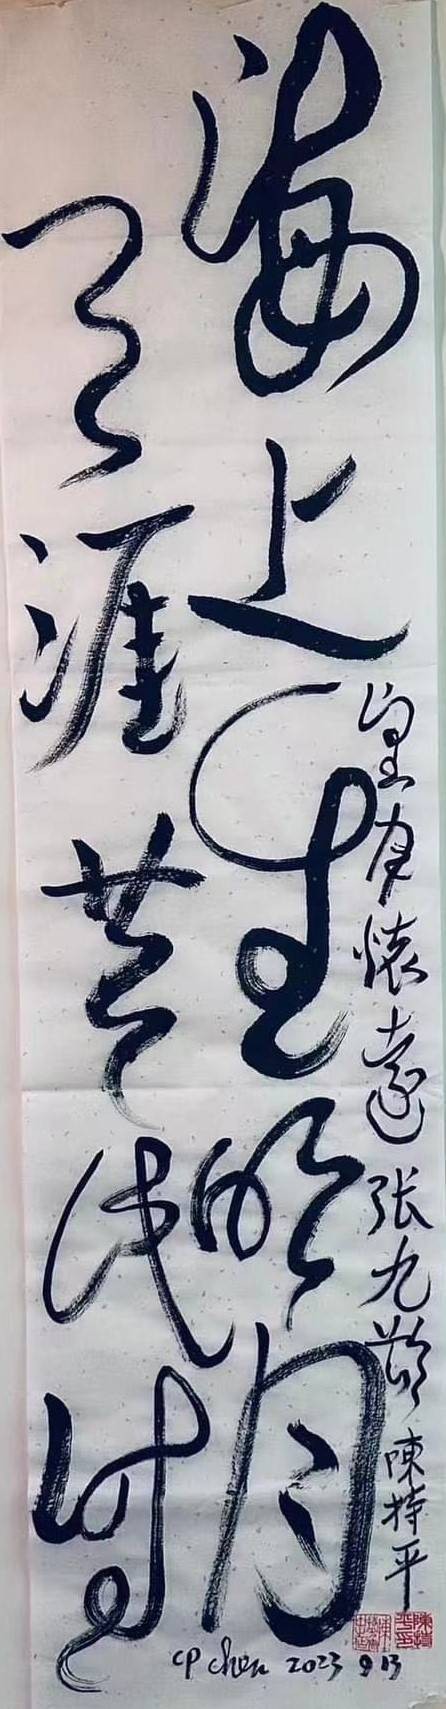 海上生明月
天涯共此時
望月懷遠 张九齡 陳持平
CP Chen 2023 9 13